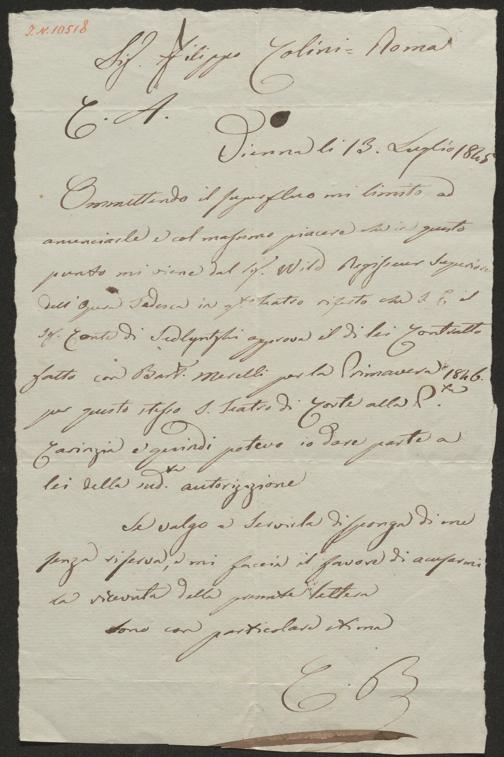 J.N. 10518
Sig. Filippo Colini = Roma
C. A.
Vienna li 13. Luglio 1845
Ommettendo il superfluo mi limito ad
annunciarle e col massimo piacere che in questo
punto mi viene dal Sig. Wild Regisseur Superiore
dell'Opera Tedesca in q.to teatro riferto che S. E. il
Sig. Conte di Sedlyntzki approva il di lei Contratto
fatto con Bart. Merelli per la Primavera 1846.
per questo stesso I. Teatro di Corte alla P.ta
Carinzia e quindi potevo io dare parte a
lei della sud.ta autorizzazione
Se valgo a servirla disponga di me
senza riserva, e mi faccia il favore di accusarmi
la ricevuta della presente lettera
sono con particolare stima
C. B